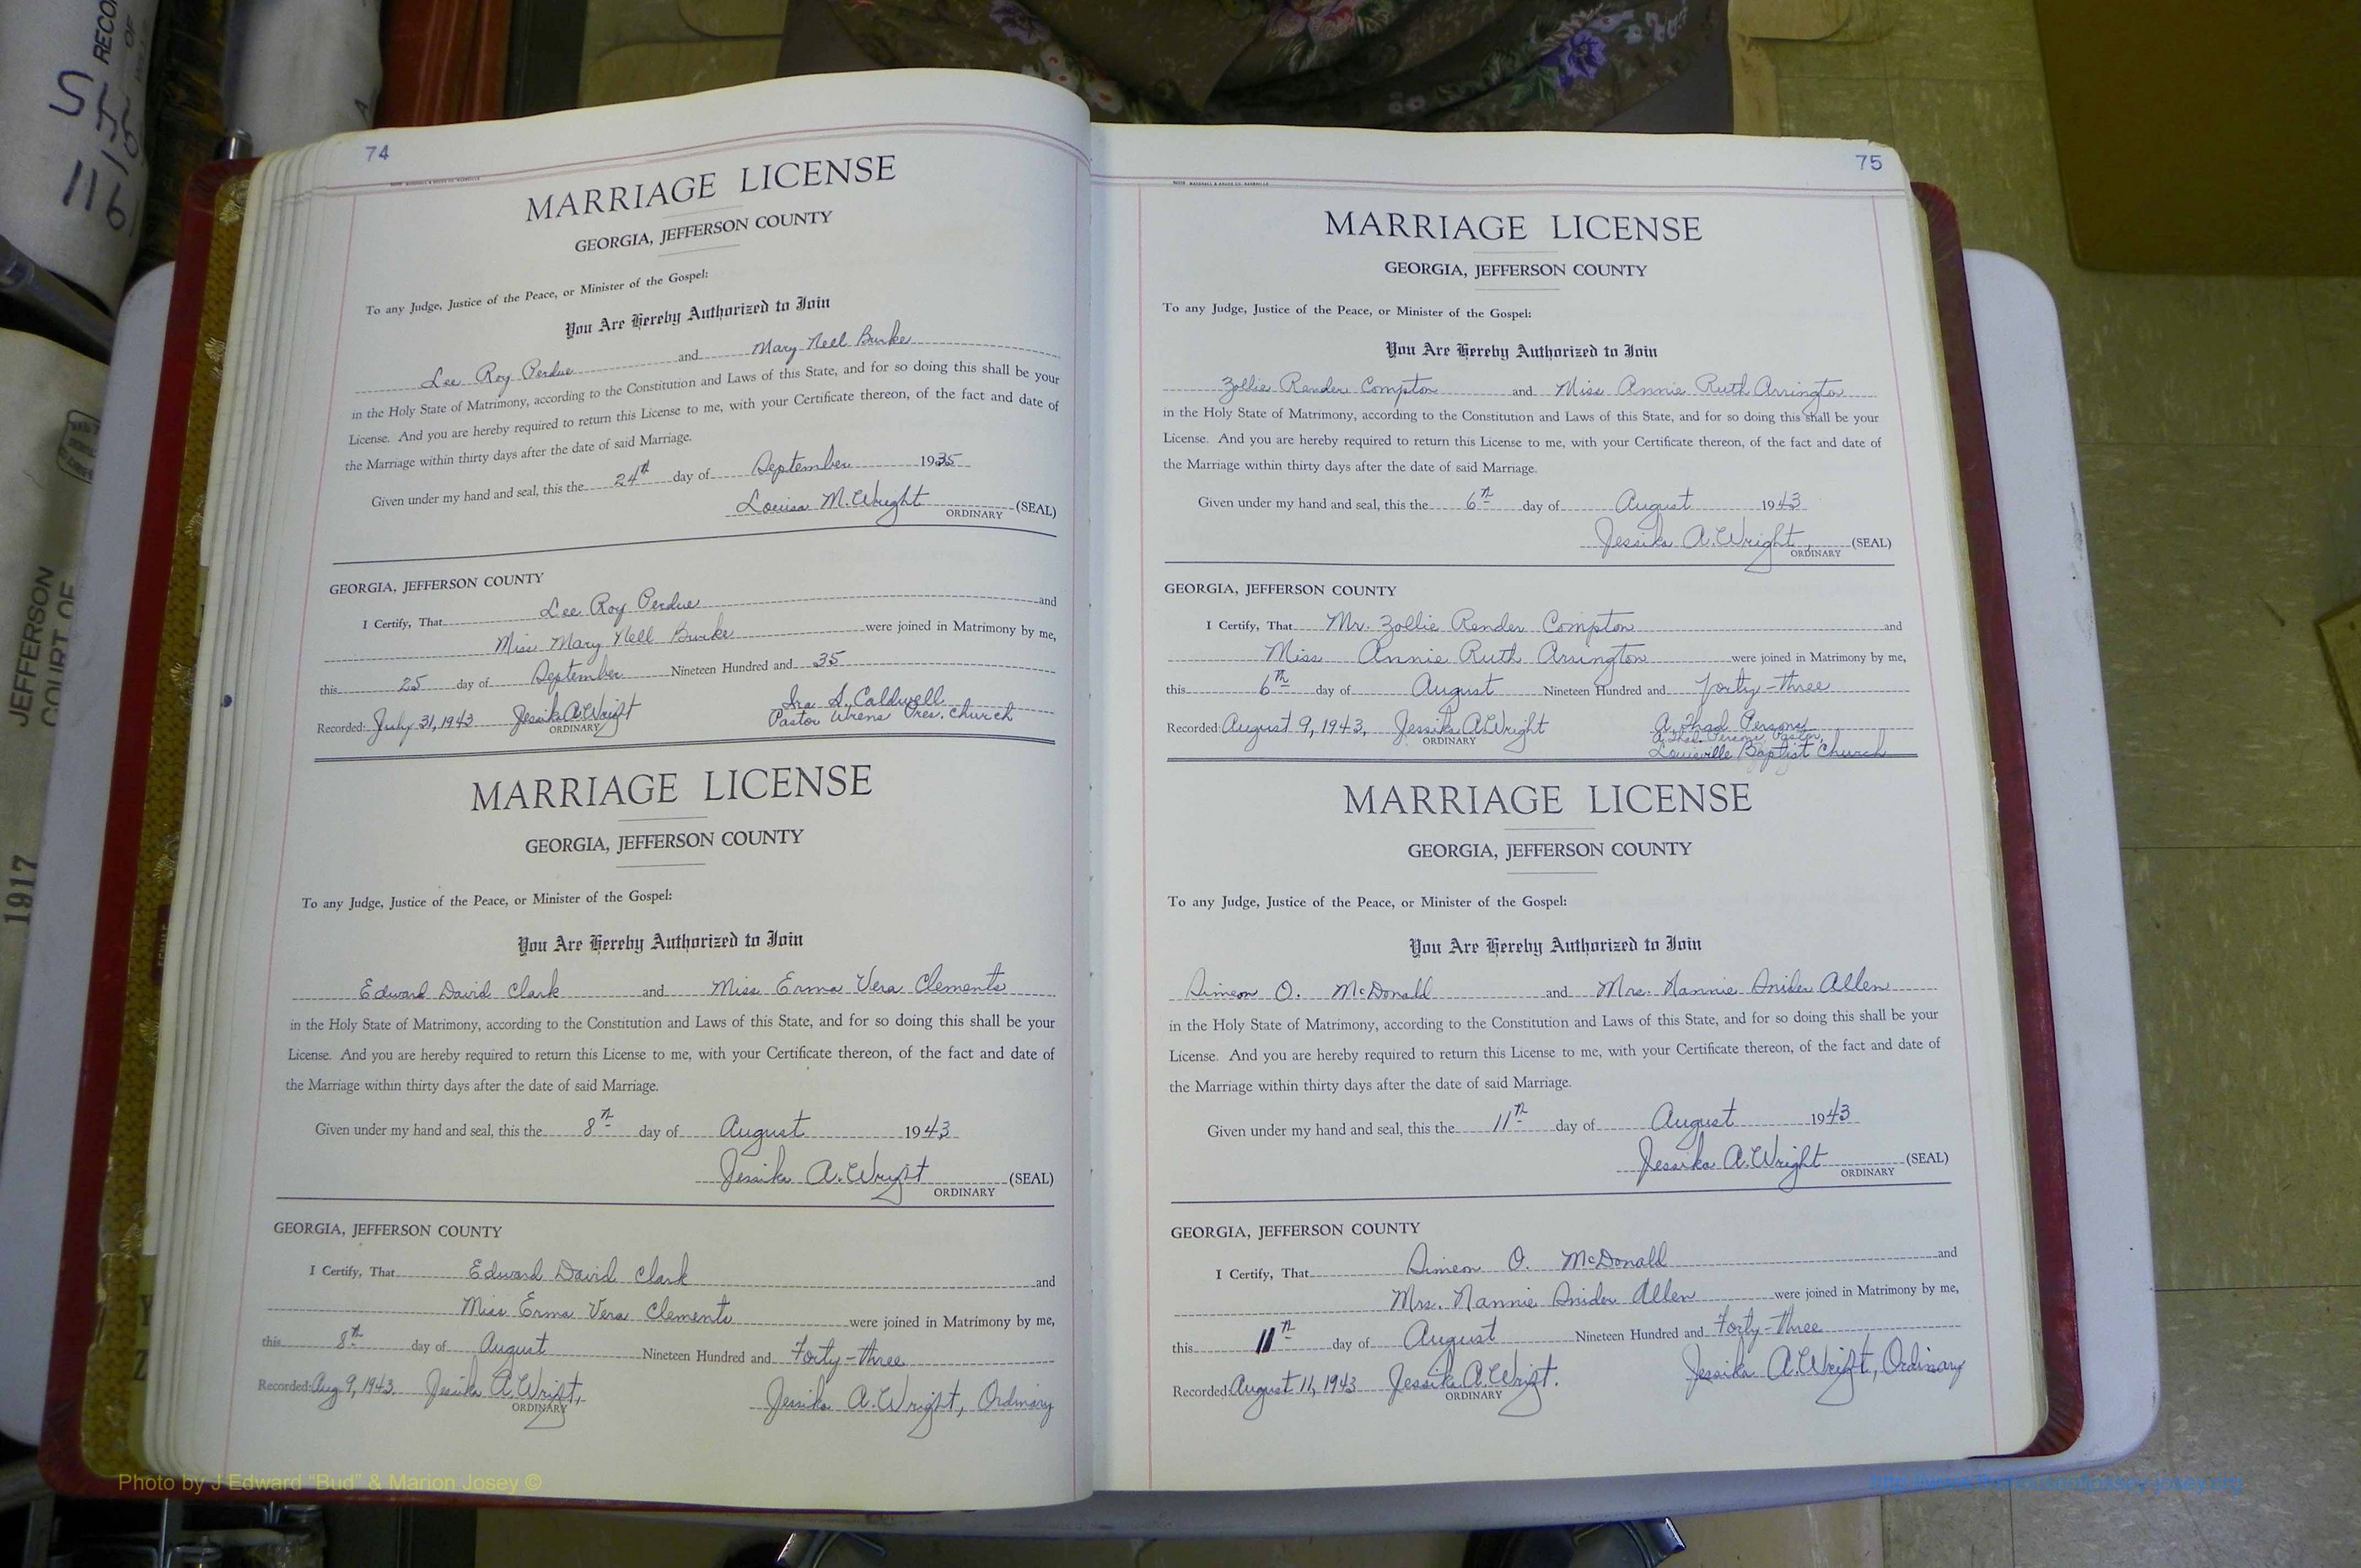 S RECO
OF
11-15
116
A
JEFFERSON
COURT OF
1917
74
MARRIAGE LICENSE
GEORGIA, JEFFERSON COUNTY
To any Judge, Justice of the Peace, or Minister of the Gospel:
You Are Hereby Authorized to Join
Lee Roy Perdue and Mary Nell Burke
in the Holy State of Matrimony, according to the Constitution and Laws of this State, and for so doing this shall be your
License. And you are hereby required to return this License to me, with your Certificate thereon, of the fact and date of
the Marriage within thirty days after the date of said Marriage.
Given under my hand and seal, this the 24th day of September 1935
Louisa M. Wright (SEAL)
ORDINARY
GEORGIA, JEFFERSON COUNTY
I Certify, That Lee Roy Perdue and
Miss Mary Nell Burke were joined in Matrimony by me,
this 25 day of September Nineteen Hundred and 35
Ira S. Caldwell
Recorded: July 31, 1943 Jessika A. Wright Pastor Wrens Pres. Church
ORDINARY
MARRIAGE LICENSE
GEORGIA, JEFFERSON COUNTY
To any Judge, Justice of the Peace, or Minister of the Gospel:
You Are Hereby Authorized to Join
Edward David Clark and Miss Erma Vera Clements
in the Holy State of Matrimony, according to the Constitution and Laws of this State, and for so doing this shall be your
License. And you are hereby required to return this License to me, with your Certificate thereon, of the fact and date of
the Marriage within thirty days after the date of said Marriage.
Given under my hand and seal, this the 8th day of August 1943
Jessika A. Wright (SEAL)
ORDINARY
GEORGIA, JEFFERSON COUNTY
I Certify, That Edward David Clark and
Miss Erma Vera Clements were joined in Matrimony by me,
this 8th day of August Nineteen Hundred and Forty-three
Recorded: Aug 9, 1943 Jessika A. Wright, Jessika A. Wright, Ordinary
ORDINARY
75
MARRIAGE LICENSE
GEORGIA, JEFFERSON COUNTY
To any Judge, Justice of the Peace, or Minister of the Gospel:
You Are Hereby Authorized to Join
Zollie Render Compton and Miss Annie Ruth Arrington
in the Holy State of Matrimony, according to the Constitution and Laws of this State, and for so doing this shall be your
License. And you are hereby required to return this License to me, with your Certificate thereon, of the fact and date of
the Marriage within thirty days after the date of said Marriage.
Given under my hand and seal, this the 6th day of August 1943
Jessika A. Wright, (SEAL)
ORDINARY
GEORGIA, JEFFERSON COUNTY
I Certify, That Mr. Zollie Render Compton and
Miss Annie Ruth Arrington were joined in Matrimony by me,
this 6th day of August Nineteen Hundred and Forty-three
Recorded: August 9, 1943, Jessika A. Wright A. Thad Persons
ORDINARY A. Thad. Persons, Pastor,
Louisville Baptist Church
MARRIAGE LICENSE
GEORGIA, JEFFERSON COUNTY
To any Judge, Justice of the Peace, or Minister of the Gospel:
You Are Hereby Authorized to Join
Simeon O. McDonald and Mrs. Nannie Snider Allen
in the Holy State of Matrimony, according to the Constitution and Laws of this State, and for so doing this shall be your
License. And you are hereby required to return this License to me, with your Certificate thereon, of the fact and date of
the Marriage within thirty days after the date of said Marriage.
Given under my hand and seal, this the 11th day of August 1943
Jessika A. Wright (SEAL)
ORDINARY
GEORGIA, JEFFERSON COUNTY
I Certify, That Simeon O. McDonald and
Mrs. Nannie Snider Allen were joined in Matrimony by me,
this 11th day of August Nineteen Hundred and Forty-Three
Recorded: August 11, 1943 Jessika A. Wright. Jessika A. Wright, Ordinary
ORDINARY
Photo by J Edward "Bud" & Marion Josey ©